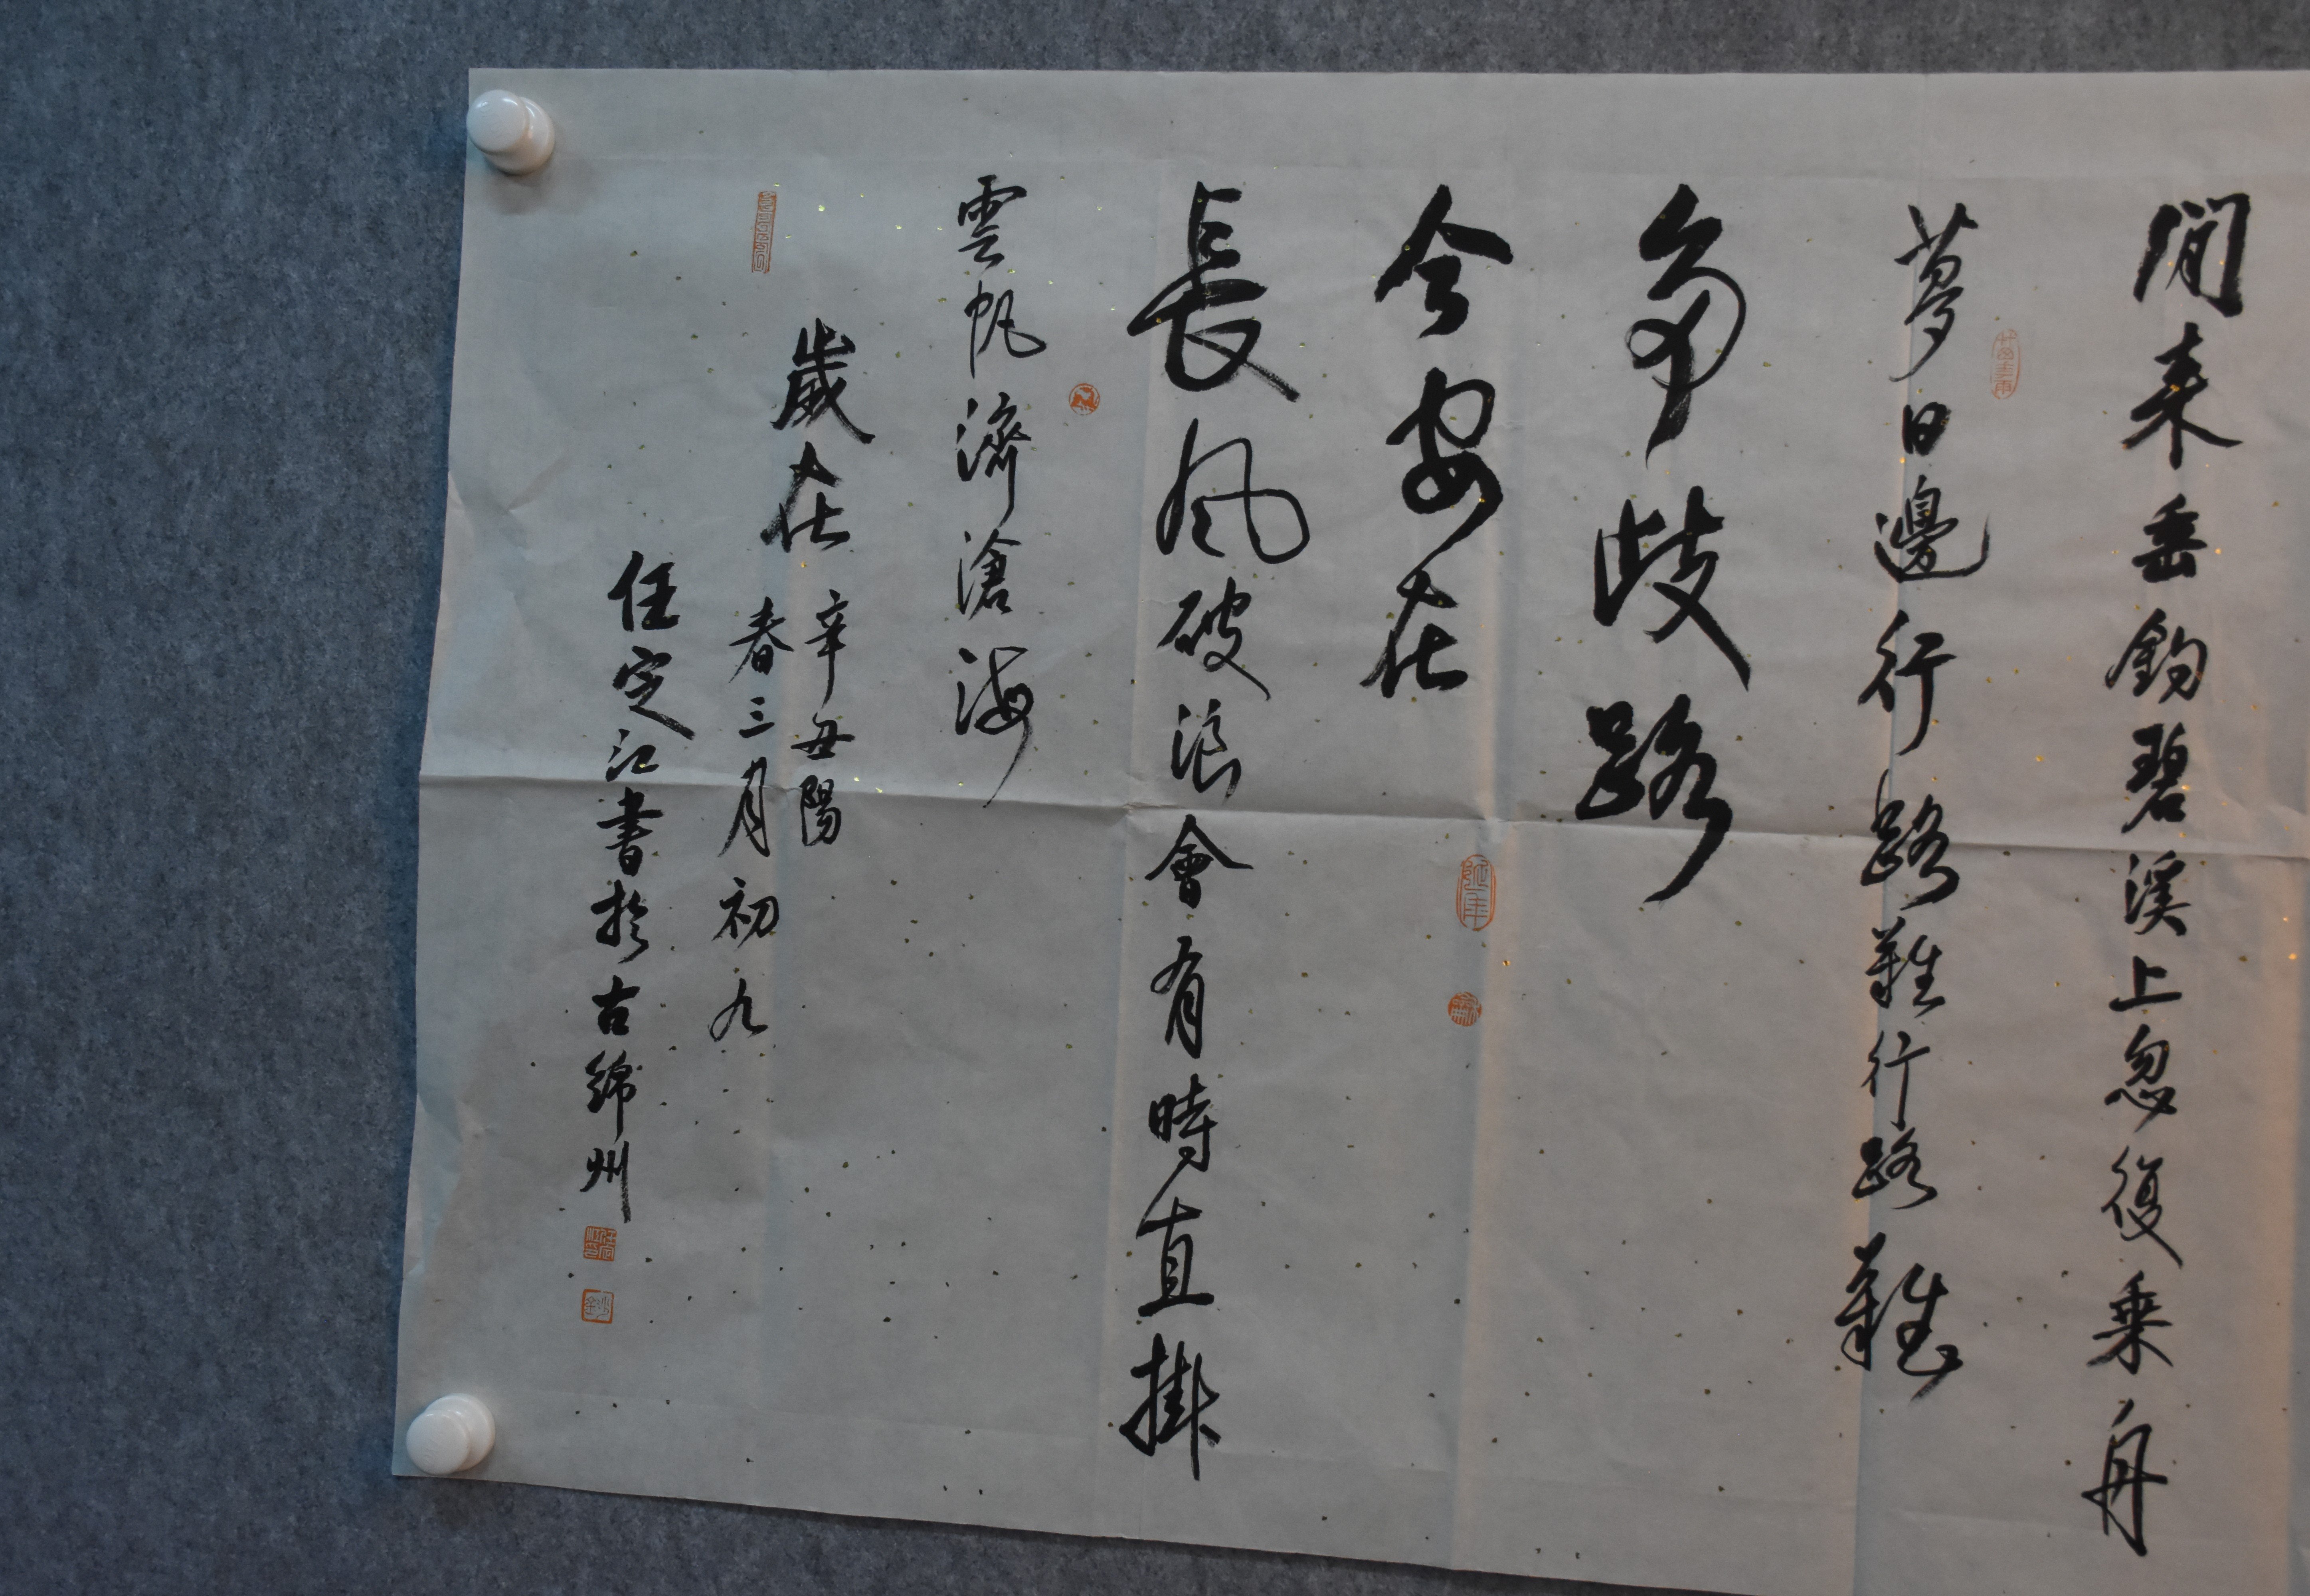 閒来垂釣碧溪上忽復乘舟
夢日邊行路難行路難
多歧路
今安在
長風破浪會有時直掛
雲帆濟滄海
歲在辛丑陽
春三月初九
任定江書於古綿州
延年